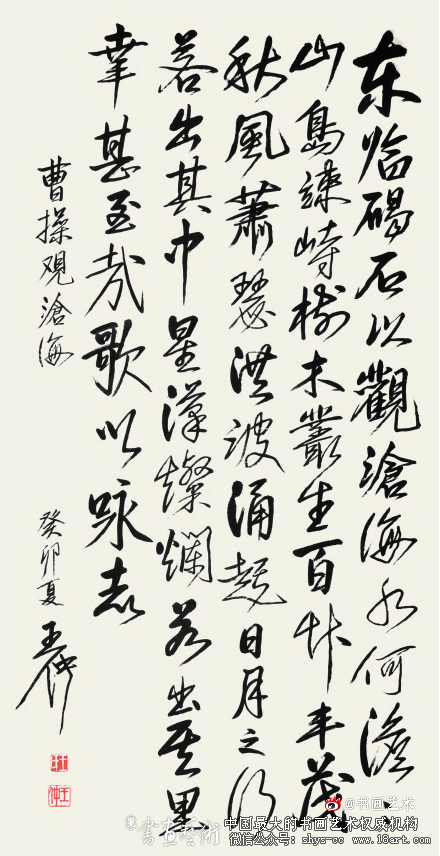 东临碣石以觀滄海水何澹澹
山島竦峙樹木叢生百草丰茂
秋風蕭瑟洪波涌起日月之行
若出其中星漢燦爛若出其里
幸甚至哉歌以咏志
曹操观滄海
癸卯夏
@书画艺术
書畫藝術
中国最大的书画艺术权威机构
微信公众号：shys-cc www.18art.com